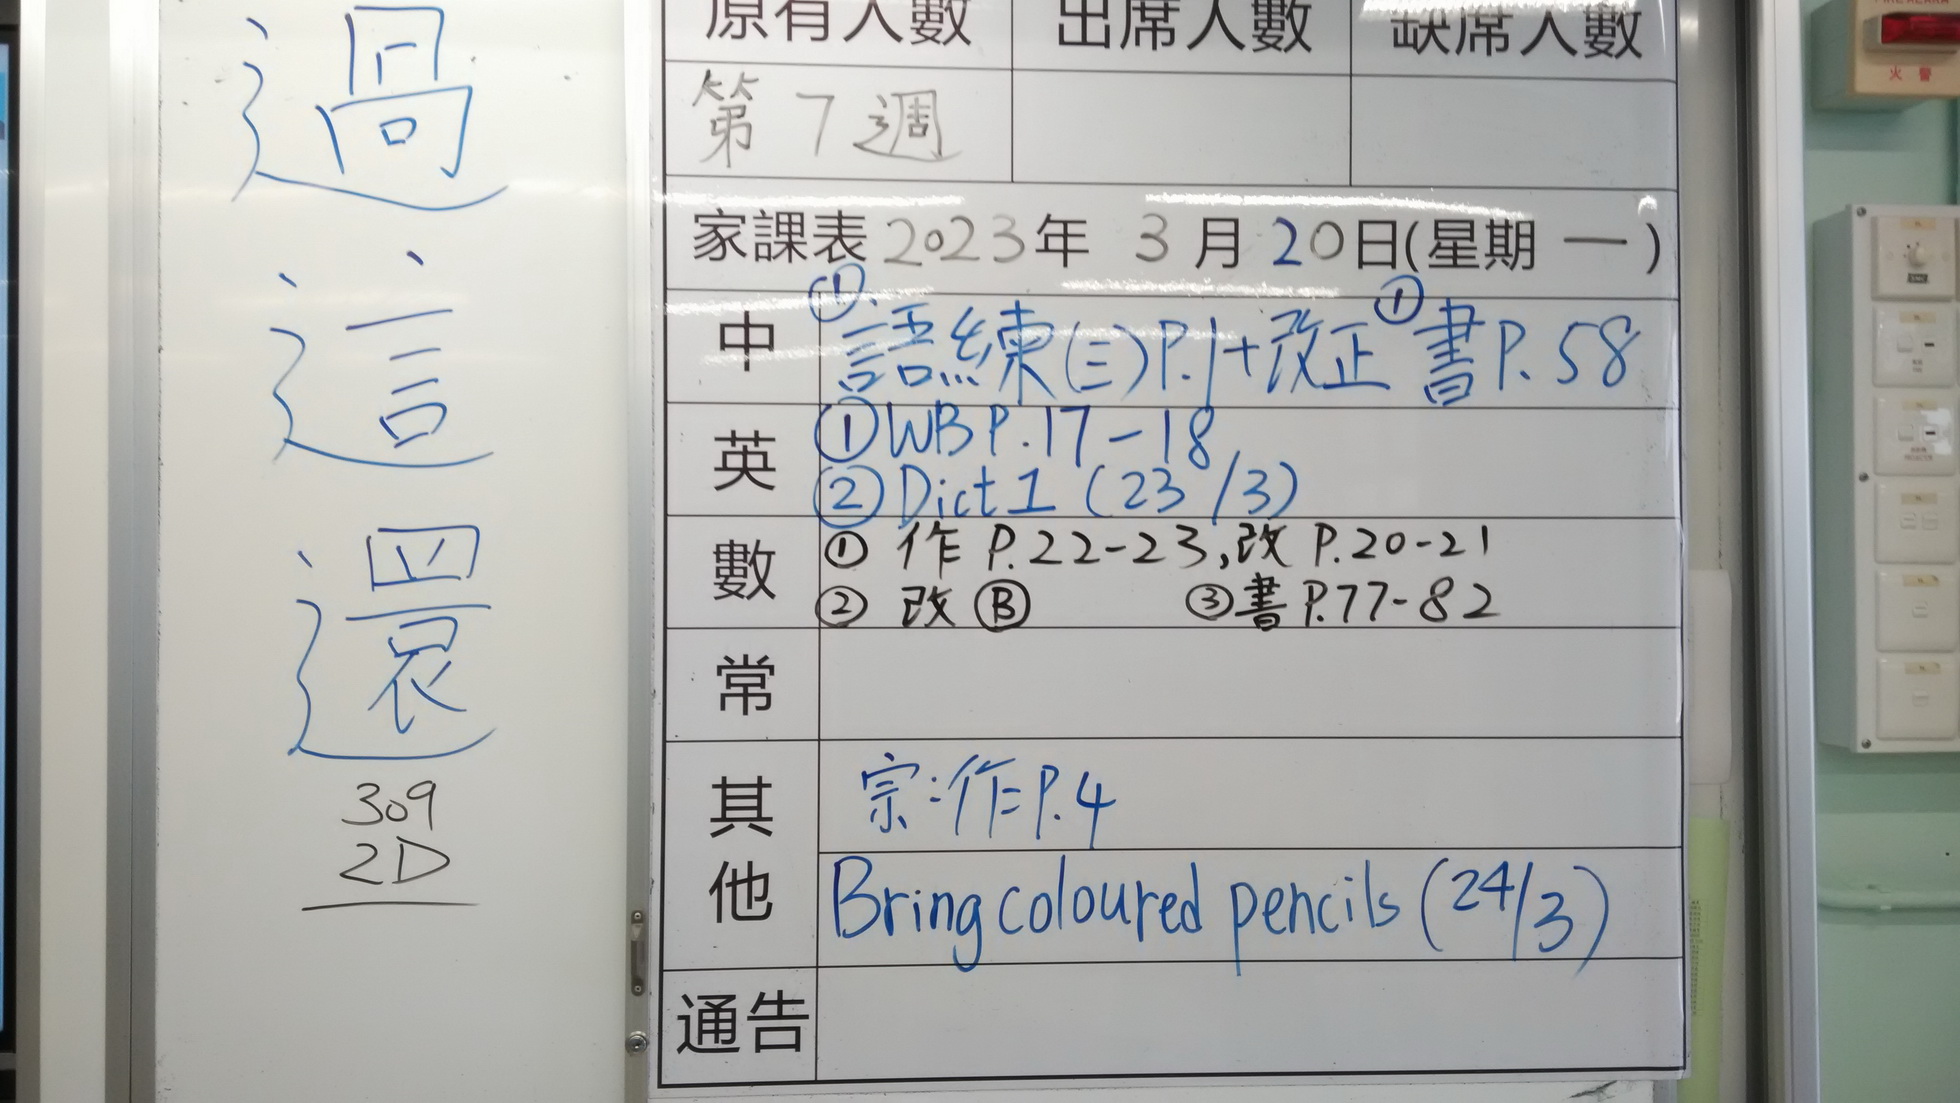 過
這
還
309
2D
原有人數 出席人數 缺席人數
第7週
家課表2023年 3月20日(星期一)
中 ①語練(三)P.1+改正 ①書P.58
英 ①WB P.17-18
②Dict 1 (23/3)
數 ① 作 P.22-23,改 P.20-21
② 改 Ⓑ ③書 P.77-82
常
其他 宗:作P.4
Bring coloured pencils (24/3)
通告
火警